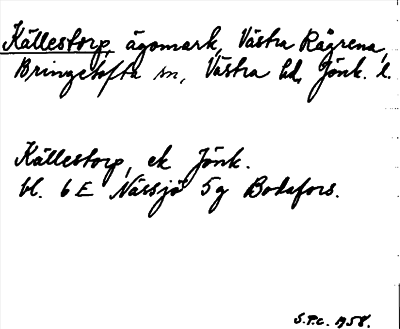 Källestorp, ägomark, Västra Rågrena,
Bringetofta sn, Västra hd, Jönk. l.
Källestorp, ek Jönk.
bl. 6 E Nässjö 5g Bodafors.
S.P.C. 1958.